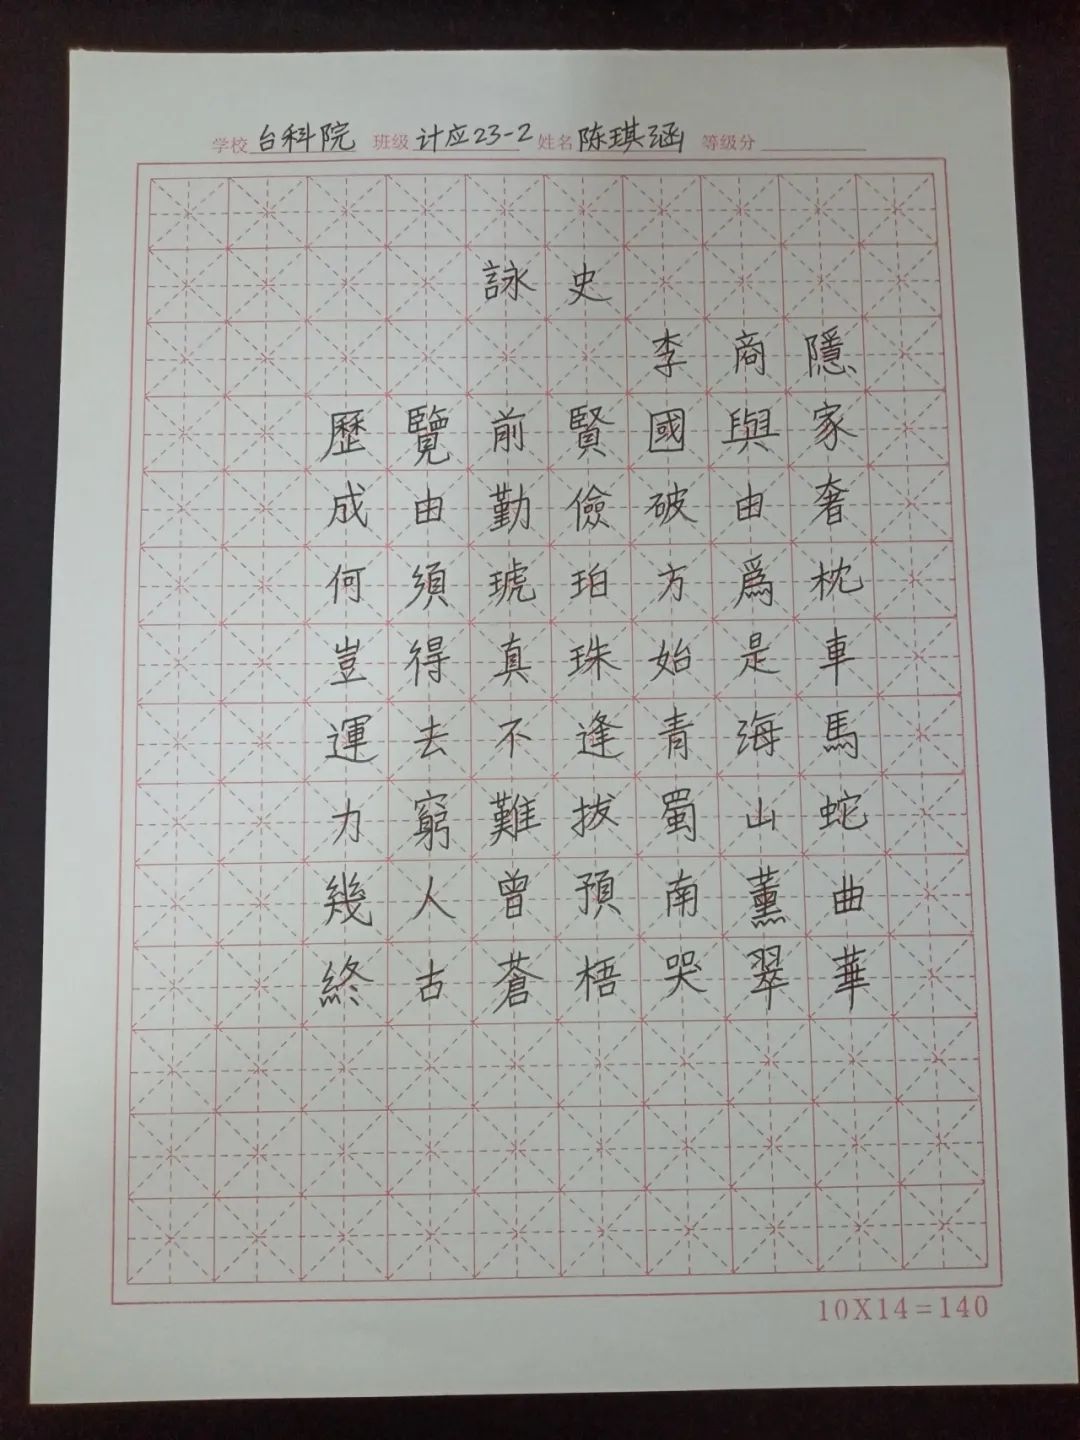 学校 台科院 班级 计应23-2 姓名 陈琪涵 等级分
詠史
李商隱
歷覽前賢國與家
成由勤儉破由奢
何須琥珀方爲枕
豈得真珠始是車
運去不逢青海馬
力窮難拔蜀山蛇
幾人曾預南薰曲
終古蒼梧哭翠華
10X14=140